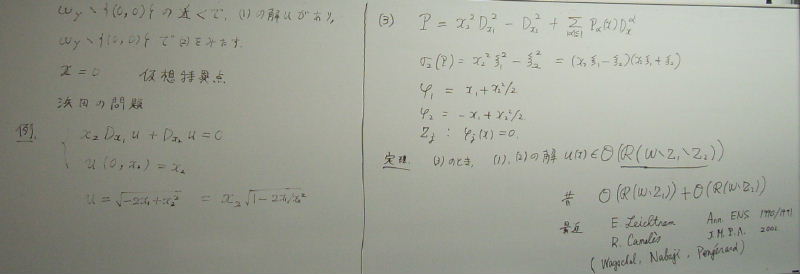 ωy∖{(0,0)} の近くで、(1)の解 u があり、
ωy∖{(0,0)} で (2) をみたす.
x=0 仮想特異点
浜田の問題
例.
x₂ D_{x₁} u + D_{x₂} u = 0
u(0, x₂) = x₂
u = √(-2x₁+x₂²) = x₂ √(1-2x₁/x₂²)
(3) P = x₂² D_{x₁}² - D_{x₂}² + Σ_{|α|≤1} P_α(x) D_x^α
σ₂(P) = x₂² ξ₁² - ξ₂² = (x₂ξ₁-ξ₂)(x₂ξ₁+ξ₂)
φ₁ = x₁+x₂²/2
φ₂ = -x₁+x₂²/2
Z_j : φ_j(x)=0.
定理. (3)のとき, (1),(2)の解 u(x) ∈ O(R(W∖Z₁∖Z₂))
O(R(W∖Z₁)) + O(R(W∖Z₂))
最近 E. Leichtnam Ann. ENS 1990/1991
R. Camalès J.M.P.A. 2002
(Wagschal, Nabaji,